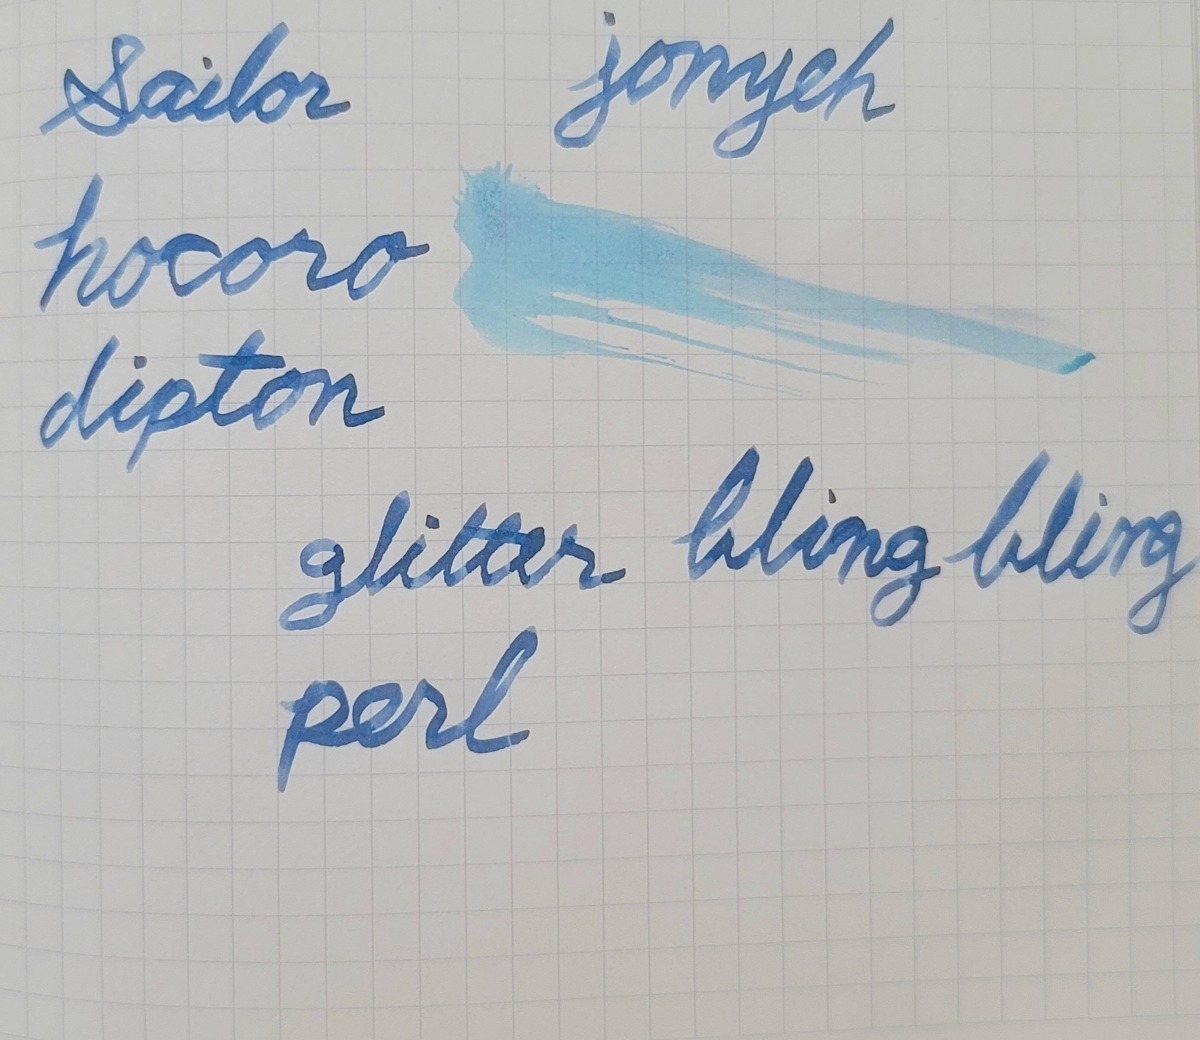 Sailor jonyeh
hocoro
dipton
glitter bling bling
perl